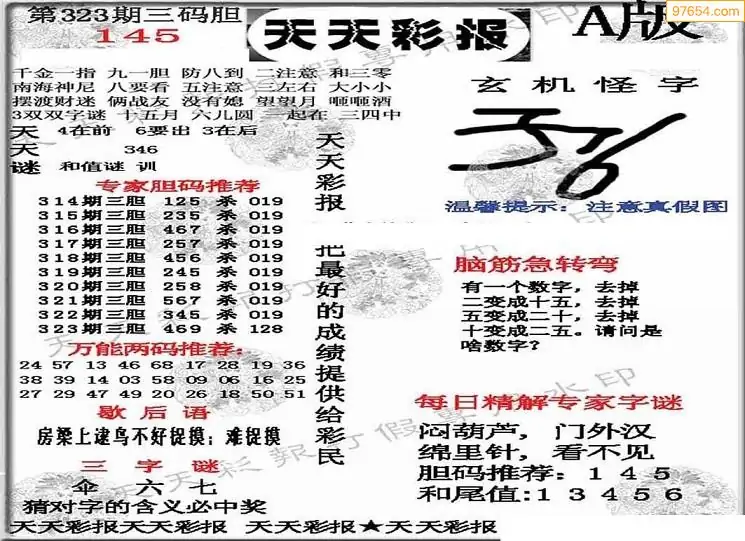 97654.com
第323期三码胆
145
天天彩报
A版
千金一指 九一胆 防八到 二注意 和三零
南海神尼 八要看 五注意 三左右 大小小
摆渡财迷 俩战友 没有媳 望望月 咂咂酒
3双双字谜 十五月 六儿圆 一起在 三四中
天 4在前 6要出 3在后
天 346
谜 和值谜 训
专家胆码推荐
314期三胆 125 杀 019
315期三胆 235 杀 019
316期三胆 467 杀 019
317期三胆 257 杀 019
318期三胆 456 杀 019
319期三胆 245 杀 019
320期三胆 258 杀 019
321期三胆 567 杀 019
322期三胆 345 杀 019
323期三胆 469 杀 128
万能两码推荐:
24 57 13 46 68 17 28 19 36
38 39 14 03 58 09 06 16 25
27 29 47 49 20 26 18 50 51
歇后语
房梁上逮鸟不好捉摸;难捉摸
三字谜
伞 六 七
猜对字的含义必中奖
天天彩报
把最好的成绩提供给彩民
玄机怪字
温馨提示:注意真假图
脑筋急转弯
有一个数字,去掉
二变成十五,去掉
五变成二十,去掉
十变成二五。请问是
啥数字?
每日精解专家字谜
闷葫芦,门外汉
绵里针,看不见
胆码推荐:145
和尾值:13456
天天彩报天天彩报 天天彩报★天天彩报